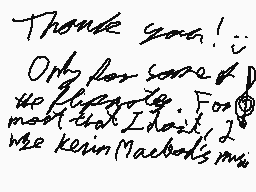 Thank you! :)
Only for some of
the flipnotes. For
most that I do it, I
use Kevin Macleod's music